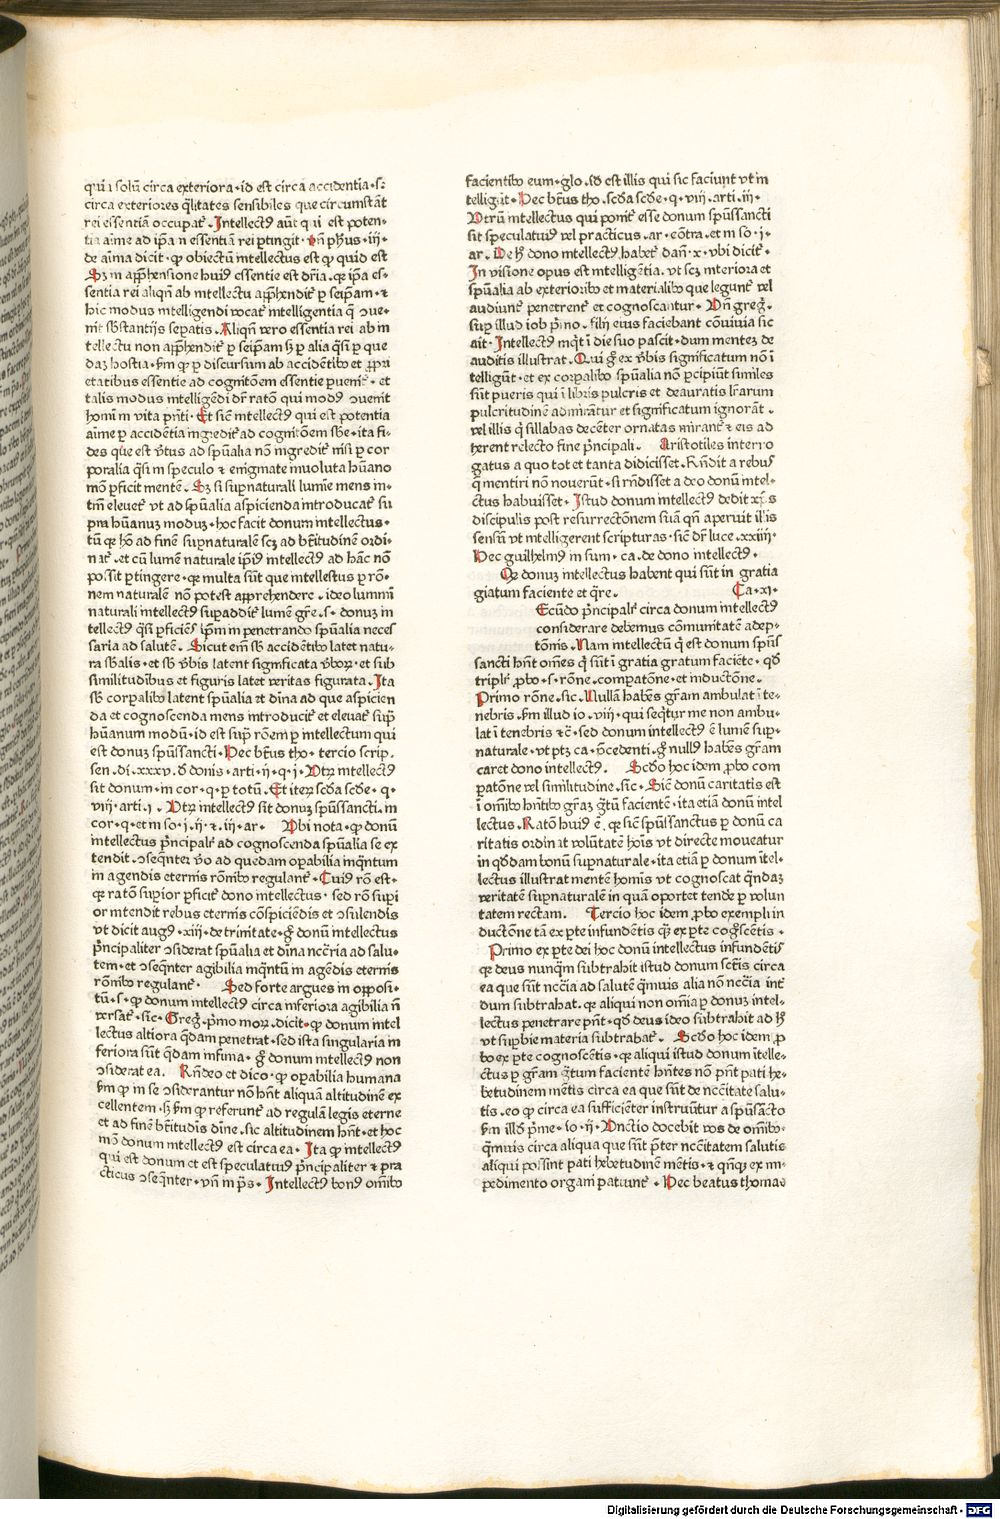 qui solū circa exteriora·id est circa accidentia·s·
circa exteriores q̄litates sensibiles que circumstāt
rei essentiā occupat᷑. Intellectꝰ aūt qui est poten-
tia aīme ad ip̄am essentiā rei ꝑtingit· vn̄ ph̄us·iij·
de aīma dicit·ꝙ obiectum intellectus est ꝙ quid est
Sꝫ in app̄hensione huiꝰ essentie est dr̄ia·ꝙ ip̄a es-
sentia rei aliqn̄ ab intellectu app̄hendit᷑ ꝑ seip̄am·⁊
hic modus intelligendi vocat᷑ intelligentia q̄ ꝯue-
nit sb̄stantijs sepatis. Aliqn̄ vero essentia rei ab in
tellectu non app̄hendit᷑ ꝑ seip̄am sꝫ ꝑ alia q̄si ꝑ que
daꝫ hostia·ẜm ꝙ ꝑ discursum ab accidētibꝰ et ꝓpri
etatibus essentie ad cognitōem essentie ꝑuenit᷑·et
talis modus intelligēdi dr̄ ratō qui modꝰ ꝯuenit
homī in vita pn̄ti·Et sic intellectꝰ qui est potentia
aīme ꝑ accidentia ingredit᷑ ad cognitōem sb̄e·ita fi-
des que est v̓tus ad spūalia nō ingredit᷑ nisi ꝑ cor
poralia q̄si in speculo ⁊ enigmate inuoluta hūano
mō ꝑficit mentē. Sꝫ si suꝑnaturali lumīe mens in-
tm̄ eleuet᷑ vt ad spūalia aspicienda introducat᷑ su
pra hūanuꝫ moduꝫ·hoc facit donum intellectus·
tū ꝙ hō ad finē suꝑnaturalē scꝫ ad btītudinē ordi-
nat᷑·et cū lumē naturale ip̄iꝰ intellectꝰ ad hāc nō
possit ꝑtingere·ꝙ multa sūt que intellectus ꝑ rō-
nem naturalē nō potest apprehendere·ideo lumini
naturali intellectꝰ suꝑaddit᷑ lumē gr̄e·s·donuꝫ in
tellectꝰ q̄si ꝑficiēs ip̄m in penetrando spūalia neces
saria ad salutē. Sicut em̄ sb̄ accidētibꝰ latet natu-
ra sb̄alis·et sb̄ v̓bis latent significata v̓boꝝ·et sub
similitudībus et figuris latet veritas figurata. Ita
sb̄ corꝑalibꝰ latent spūalia et diīna ad que aspicien
da et cognoscenda mens introducit᷑ et eleuat᷑ suꝑ
hūanum modū·id est suꝑ rōem ꝑ intellectum qui
est donuꝫ spūssancti·Hec bt̄us tho·tercio scrip.
sen·di·xxxv·d̓ donis·arti·ij·q·j·Vtꝝ intellectꝰ
sit donum·in cor·q·ꝑ totū. Et iteꝝ scd̓a scd̓e·q·
viij·arti·i· Vtꝝ intellectꝰ sit donuꝫ spūssancti·in
cor·q·et in so·j·ij·⁊·iij·ar· Vbi nota·ꝙ donū
intellectus pn̄cipalr̄ ad cognoscenda spūalia se ex
tendit·ꝯseqn̄ter v̓o ad quedam oꝑabilia inqn̄tum
in agendis eternis rōnibꝰ regulant᷑·Cuiꝰ rō est·
ꝙ ratō suꝑior ꝑficit᷑ dono intellectus·sed rō supi
or intendit rebus eternis cōspiciēdis et ꝯsulendis
vt dicit augꝰ·xiij·de trinitate·g̊ donū intellectus
pn̄cipaliter ꝯsiderat spūalia et diīna necc̄ria ad salu-
tem·et ꝯseqn̄ter agibilia inqn̄tū in agēdis eternis
rōnibꝰ regulant᷑· Sed forte argues in opposi-
tū·s·ꝙ donum intellectꝰ circa inferiora agibilia n̄
versat᷑·sic·Greg̓·p̓mo moꝝ·dicit·ꝙ donum intel
lectus altiora q̄dam penetrat·sed ista singularia in
feriora sūt q̄dam infima·g̊ donum intellectꝰ non
ꝯsiderat ea. Rn̄deo et dico·ꝙ oꝑabilia humana
ẜm ꝙ in se ꝯsiderantur nō hn̄t aliquā altitudinē ex
cellentem·sꝫ ẜm ꝙ referunt᷑ ad regulā legis eterne
et ad finē btītudīs diīne·sic altitudinem hn̄t·et hoc
mō donum intellectꝰ est circa ea·Ita ꝙ intellectꝰ
qui est donum et est speculatiuꝰ pn̄cipaliter ⁊ pra
cticus ꝯseqn̄ter·vn̄ in ps̄·Intellectꝰ bonꝰ om̄ibꝰ
facientibꝰ eum·glo·id est illis qui sic faciunt vt in
telligūt·Hec bt̄us tho·scd̓a scd̓e·q·viij·arti·iij·
Vtrū intellectus qui ponit᷑ esse donum spūssancti
sit speculatiuꝰ vel practicus·ar·cōtra·et in so·j·
ar· De hꝰ dono intellectꝰ habet᷑ dan̄·x·vbi dicit᷑·
In visione opus est intelligētia·vt scꝫ interiora et
spūalia ab exterioribꝰ et materialibꝰ que legunt᷑ vel
audiunt᷑ penetrent᷑ et cognoscantur· Vn̄ greg̓·
suꝑ illud iob p̓mo·filij eius faciebant cōuiuia sic
ait·Intellectꝰ inq̄t ī die suo pascit·dum mentes de
auditis illustrat·Qui g̊ ex v̓bis significatum nō ī
telligūt·et ex corꝑalibꝰ spūalia nō ꝑcipiūt similes
sūt pueris qui ī libris pulcris et deauratis lr̄arum
pulcritudinē admirātur et significatum ignorāt·
vel illis q̄ sillabas decēter ornatas mirant᷑ ⁊ eis ad
herent relecto fine pn̄cipali. Aristotiles interro
gatus a quo tot et tanta didicisset·Rn̄dit a rebus
q̄ mentiri nō nouerūt·si rn̄disset a deo donū intel-
ctus habuisset·Istud donum intellectꝰ dedit xp̄s
discipulis post resurrectōnem suā qn̄ aperuit illis
sensū vt intelligerent scripturas·sic dr̄ luce·xxiiij·
Hec guilhelmꝰ in sum·ca·de dono intellectꝰ·
Qꝙ donuꝫ intellectus habent qui sūt in gratia
giatum faciente et q̄re. Ca·xi·
Ecūdo pn̄cipalr̄ circa donum intellectꝰ
considerare debemus cōmunitatē adep-
tōnis·Nam intellectū q̄ est donum spūs
sancti hn̄t om̄es q̄ sūt ī gratia gratum faciēte·qd̓
tripl̄r ꝓbo·s·rōne·comꝑatōne·et inductōne·
Primo rōne·sic·Nullꝰ habēs gr̄am ambulat ī te-
nebris·ẜm illud io·viij·qui seqt̄ur me non ambu-
lat ī tenebris ⁊c̄·sed donum intellectꝰ ē lumē suꝑ-
naturale·vt ptꝫ ca·p̄cedenti·g̊ nullꝰ habēs gr̄am
caret dono intellectꝰ. Scd̓o hoc idem ꝓbo com
patōne vel similitudine·sic·Sic donū caritatis est
ī om̄ibꝰ hn̄tibꝰ gr̄aꝫ gt̄ū facientē·ita etiā donū intel
lectus·Ratō huiꝰ ē·ꝙ sic spūssanctus ꝑ donū ca
ritatis ordinat volūtatē hoīs vt directe moueatur
in qd̓dam bonū suꝑnaturale·ita etiā ꝑ donum ītel-
lectus illustrat mentē hominis vt cognoscat qn̄daꝫ
veritatē suꝑnaturalē in quā oportet tende̓ ꝑ volun
tatem rectam. Tercio hoc idem ꝓbo exempli in
ductōne tā ex ꝑte infundētis qꝫ ex ꝑte cogn̄scētis·
Primo ex ꝑte dei hoc donū intellectus infundētis
ꝙ deus nunqꝫ subtrahit istud donum sct̄is circa
ea que sūt necc̄ia ad salutē qꝫuis alia nō necc̄ia int̓
dum subtrahat·ꝙ aliqui non om̄ia ꝑ donuꝫ intel-
lectus penetrare pn̄t·qd̓ deus ideo subtrahit ad hꝰ
vt suꝑbie materia subtrahat᷑. Scd̓o hoc idem ꝓ
bo ex ꝑte cognoscētis·ꝙ aliqui istud donum ītelle-
ctus ꝑ gr̄am gt̄um facientē hn̄tes nō pn̄t pati he-
betudinem mētis circa ea que sūt de nccītate salu-
tis·eo ꝙ circa ea sufficiēter instruūtur a spūsācto
ẜm illd̓ p̓me·io·ij·Vnctio docebit vos de om̄ibꝰ·
qꝫuis circa aliqua que sūt p̄ter nccītatem salutis
aliqui possint pati hebetudinē mētis·⁊ qn̄qꝫ ex im-
pedimento organi patiunt᷑·Hec beatus thomas
Digitalisierung gefördert durch die Deutsche Forschungsgemeinschaft - DFG